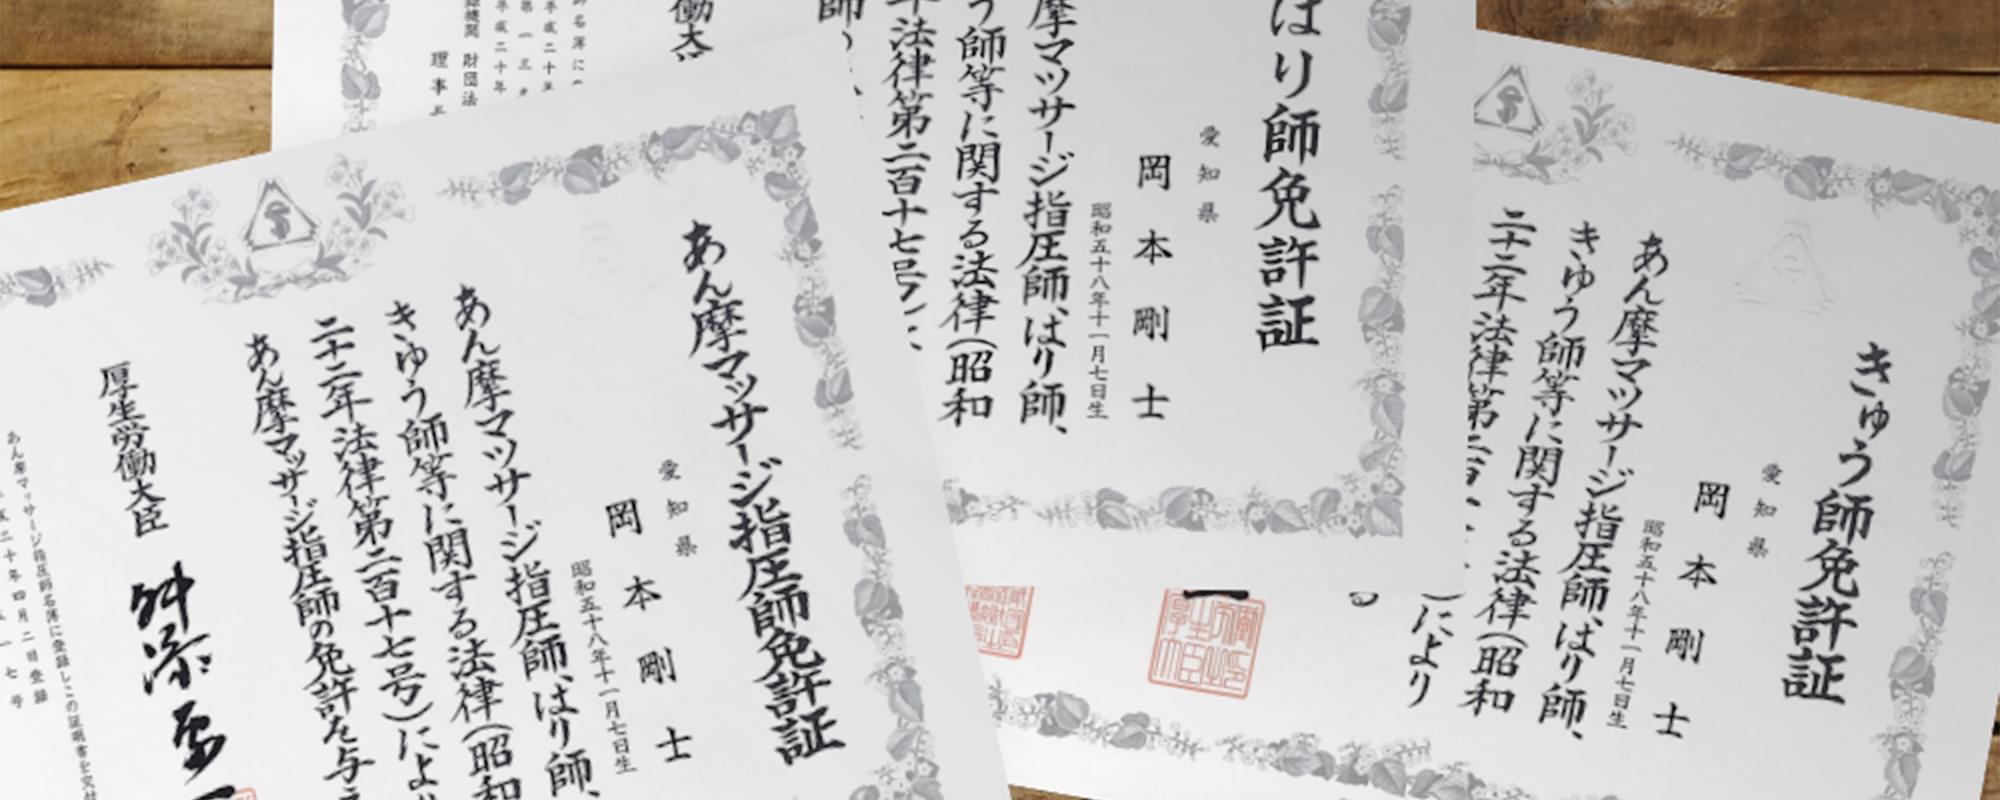 あん摩マッサージ指圧師免許証
愛知県
岡本剛士
昭和五十八年十一月七日生
あん摩マッサージ指圧師、はり師、
きゅう師等に関する法律(昭和
二十二年法律第二百十七号)によ
あん摩マッサージ指圧師の免許を与
厚生労働大臣
舛添
あん摩マッサージ指圧師名簿に登録しこの証明書を交付
二十年四月二日登録
一七号
はり師免許証
愛知県
岡本剛士
昭和五十八年十一月七日生
摩マッサージ指圧師、はり師、
う師等に関する法律(昭和
年法律第二百十七号
師
働大
師名簿に
平成二十年
第一三
平成二十年
機関 財団法
理事
きゅう師免許証
愛知県
岡本剛士
昭和五十八年十一月七日生
あん摩マッサージ指圧師、はり師、
きゅう師等に関する法律(昭和
二十二年法律第二百
)により